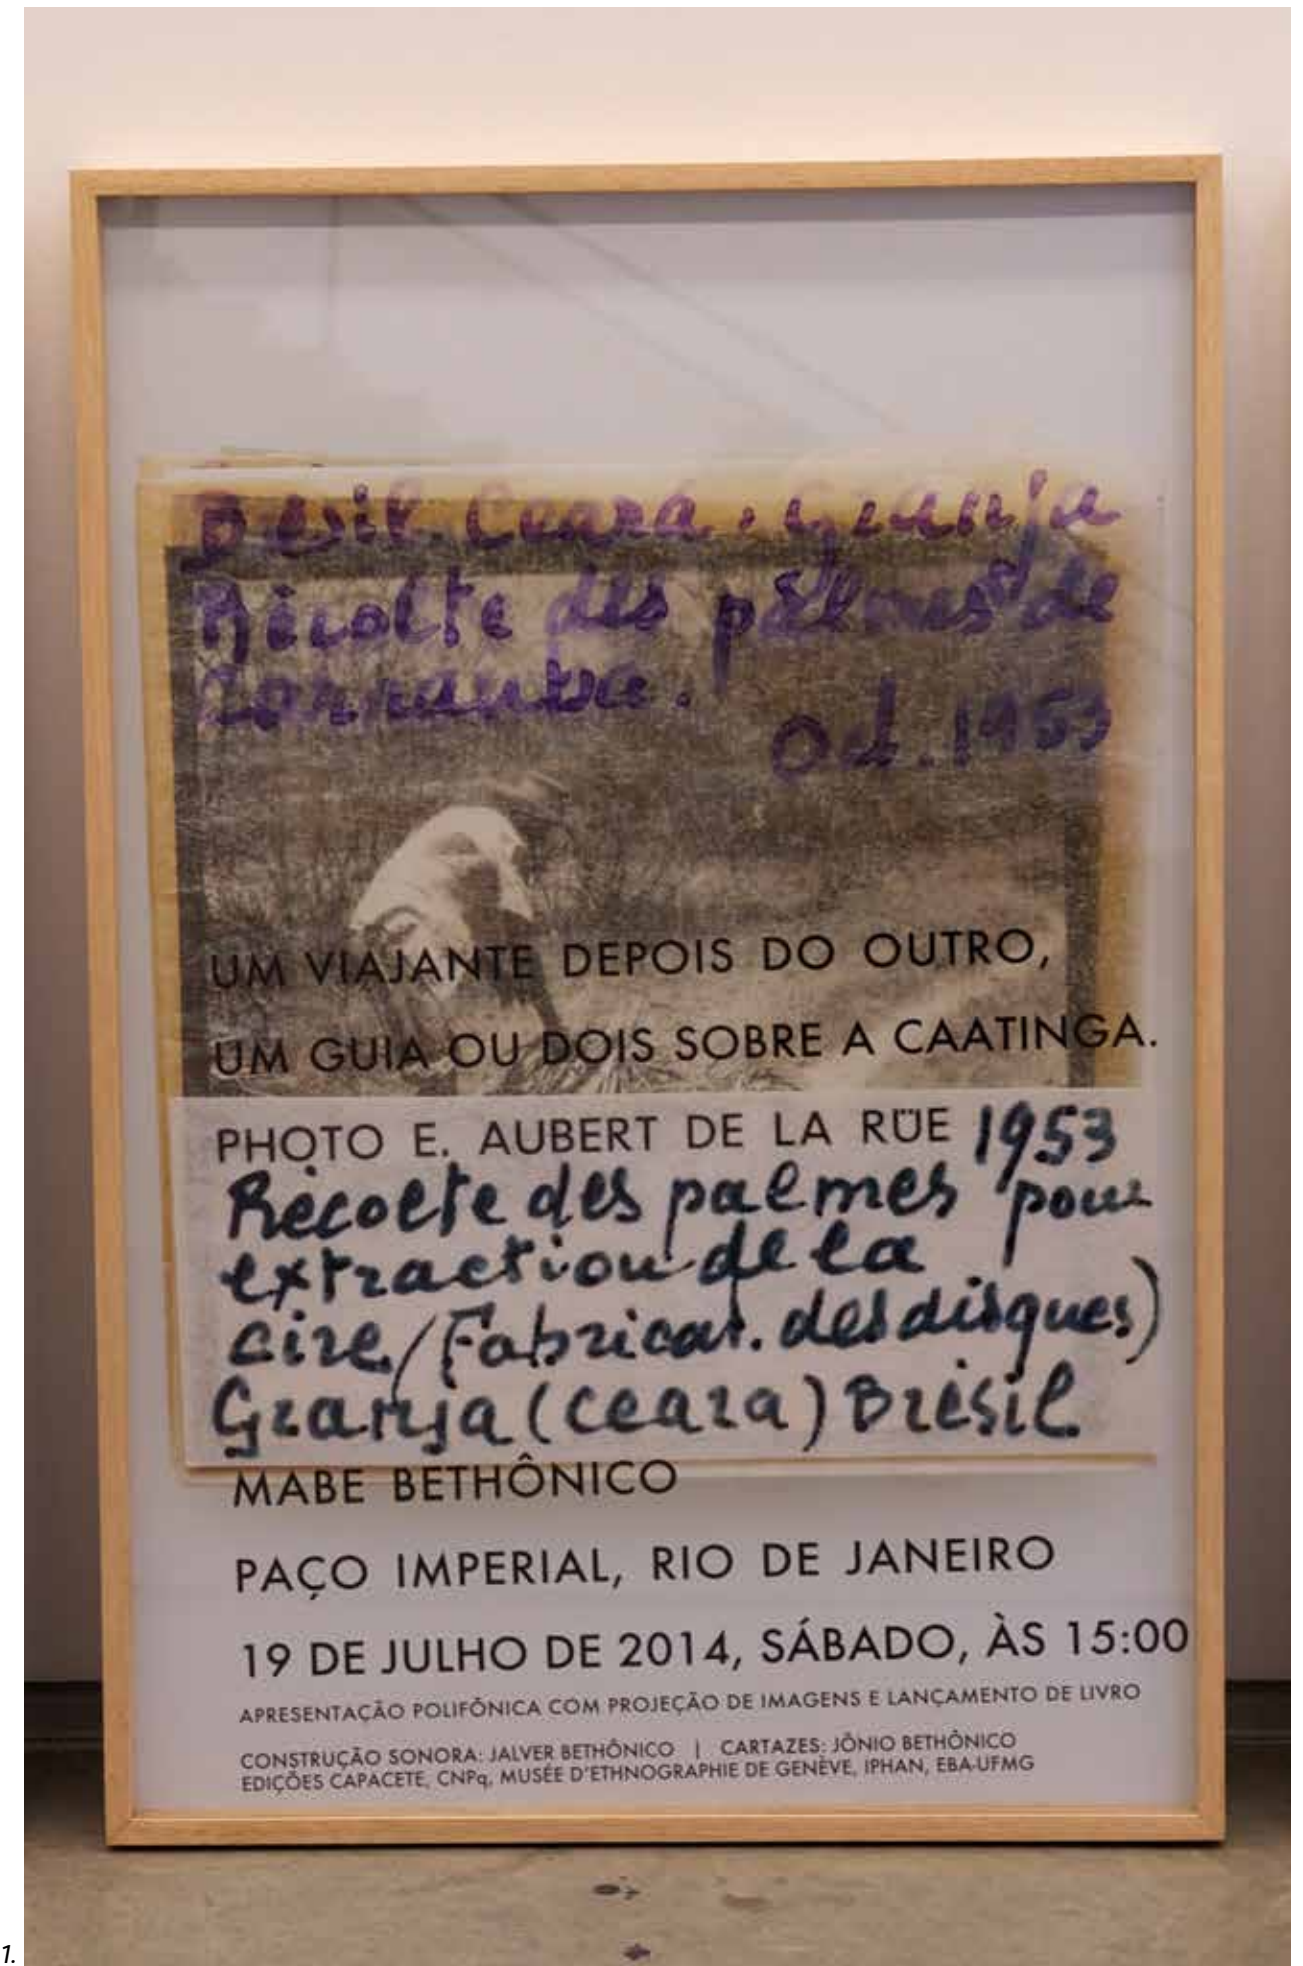 Brésil Ceará. Granja
Récolte des palmes de
Carnauba.
Oct. 1953
UM VIAJANTE DEPOIS DO OUTRO,
UM GUIA OU DOIS SOBRE A CAATINGA.
PHOTO E. AUBERT DE LA RÜE 1953
Récolte des palmes pour
extraction de la
cire (Fabricat. des disques)
Granja (Ceara) Brésil
MABE BETHÔNICO
PAÇO IMPERIAL, RIO DE JANEIRO
19 DE JULHO DE 2014, SÁBADO, ÀS 15:00
APRESENTAÇÃO POLIFÔNICA COM PROJEÇÃO DE IMAGENS E LANÇAMENTO DE LIVRO
CONSTRUÇÃO SONORA: JALVER BETHÔNICO | CARTAZES: JÔNIO BETHÔNICO
EDIÇÕES CAPACETE, CNPq, MUSÉE D'ETHNOGRAPHIE DE GENÈVE, IPHAN, EBA-UFMG
1.